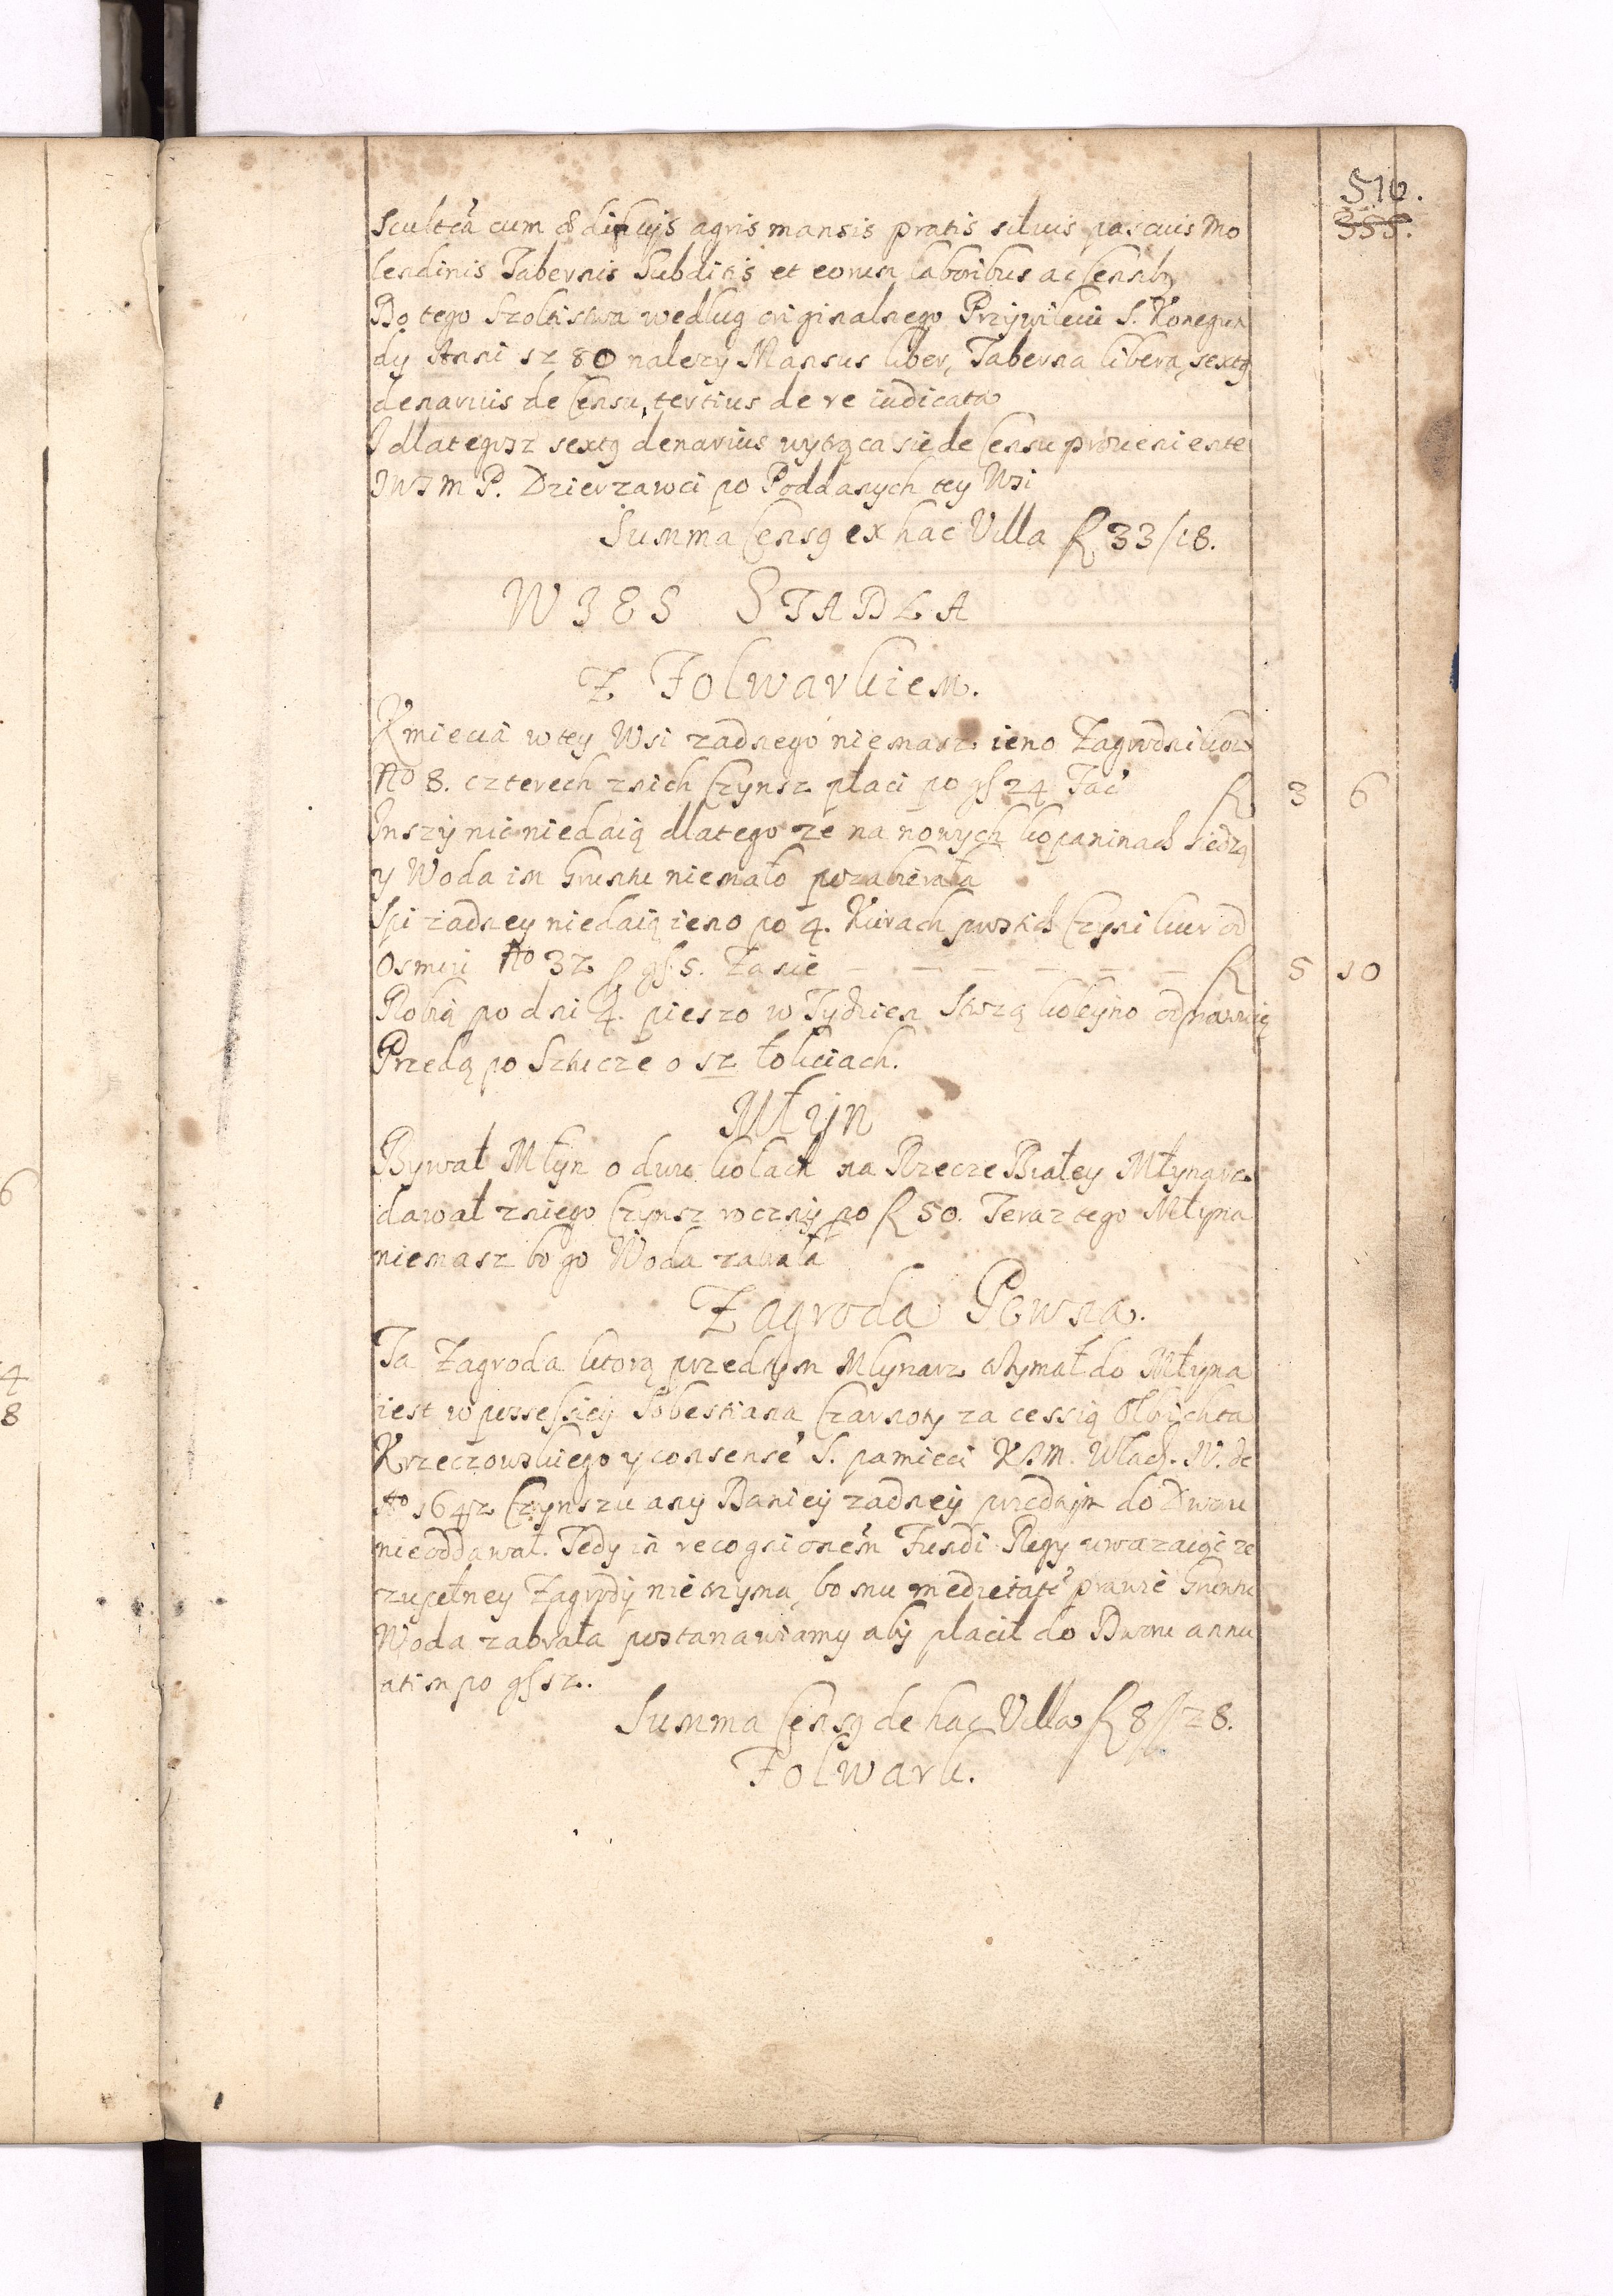 510.
355.
Scultetia cum ædificijs agris mansis pratis siluis pascuis mo
lendinis Tabernis Subditis et eorum laboribus ac Censibus
Do tego Szoltistwa wedlug originalnego Przywileiu S. Konegun
dy Anni 1280 nalezy Mansus liber, Taberna libera, sextus
denarius de Censu, tertius de re iudicata
I dlategosz sextus denarius wytrąca sie de Censu proueniente
Iwsm P. Dzierzawci po Poddanych tey Wsi
Summa Census ex hac Villa f 33/18.
WIES STADLA
Z Folwarkiem.
Kmiecia wtey Wsi zadnego niemasz ieno Zagrodnikow
No 8. czterech znich Czynsz płaci po gs 24 Fac f 3 6
Inszy nic niedaią dlatego ze na nowych kopaninach siedzą
y Woda im Gruntu niemało pozabierała
Spi zadney niedaią ieno po 4. Kurach wszitkich Czyni kur od
Osmiu No 32 p gs 5. Za nie f 5 10
Robią po dni 4. pieszo w Tydzien Strożą koleyno odprawuią
Przedą po Sztucze o 12 łokciach.
Młyn
Bywał Młyn o dwu kolach na Rzecze Białey Młynarz
dawał zniego Czynsz roczny po f 50. Teraz tego Młyna
niemasz bo go Woda zabrała
Zagroda Pewna.
Ta Zagroda ktorą przedtym Mlynarz trzymał do Młyna
iest w possessiey Sobestiana Czarnoty za cessią Olbrichta
Krzeczowskiego y consense S. pamieci KJM. Wład. IV. de
Ao 1642 Czynszu any Daniey zadney przedtym do Dworu
nieoddawał. Tedy in recognitionem Fundi Regy uwazaiąc ze
zupełney Zagrody nie trzyma, bo mu medietate prawie Gruntu
Woda zabrała postanawiamy aby płacił do Dworu annu
atim po gs 12.
Summa Census de hac Villa f 8/28.
Folwark.
6
4
8